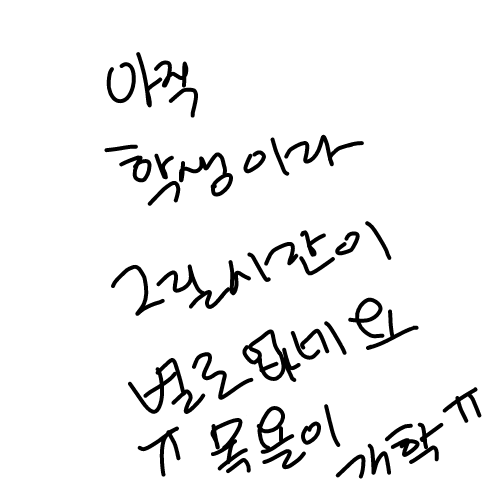 아직
학생이라
그릴시간이
별로 없네요
ㅠ 목욜이 개학ㅠ